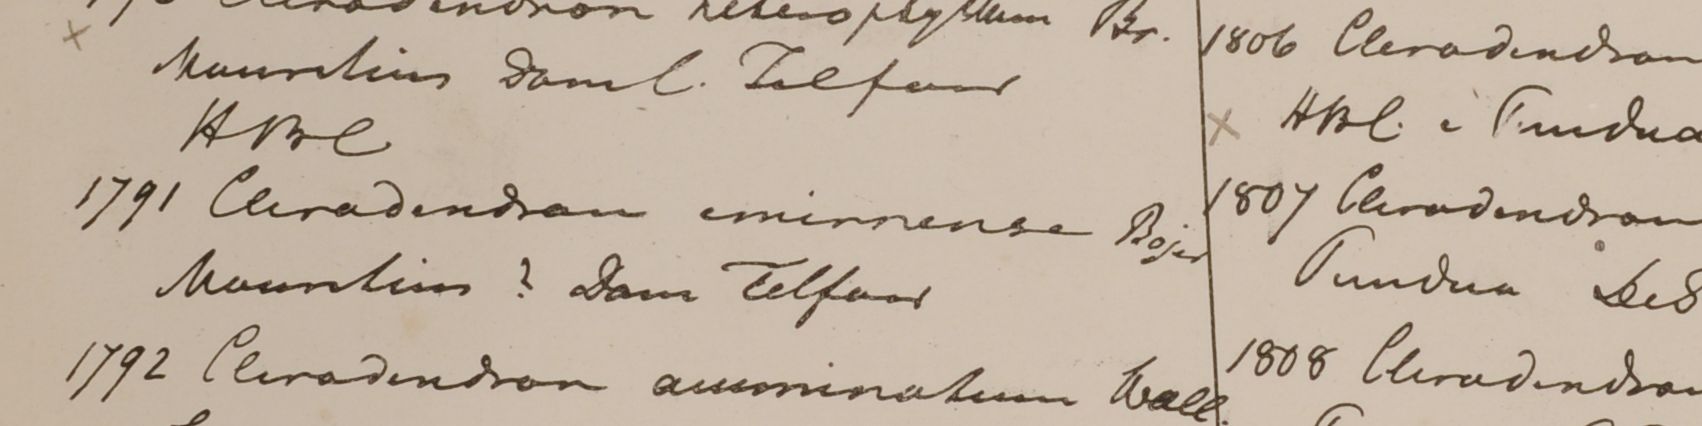 Clerodendron heterophyllum Br.
Mauritius Dom C. Telfair
HBC
1791 Clerodendron emirnense Bojer
Mauritius ? Dom Telfair
1792 Clerodendron acuminatum Wall.
1806 Clerodendron
HBC. e Pundua
1807 Clerodendron
Pundua
1808 Clerodendron